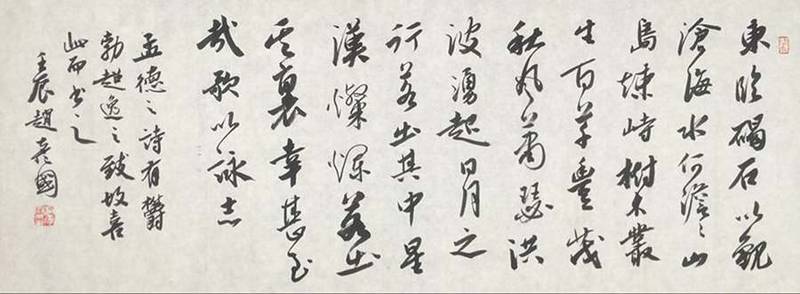 東臨碣石以觀
滄海水何澹々山
島竦峙樹木叢
生百草豐茂
秋風蕭瑟洪
波湧起日月之
行若出其中星
漢燦爛若出
其裏幸甚至
哉歌以詠志
孟德之詩有鬱
勃超逸之致故喜
此而書之
壬辰趙彥國